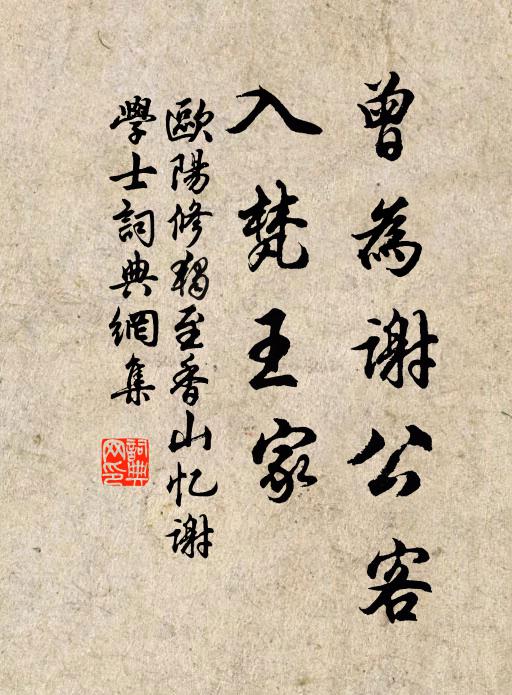 曾為謝公客
入梵王家
歐陽修獨至香山忆謝
學士詞典網集
詞典網印